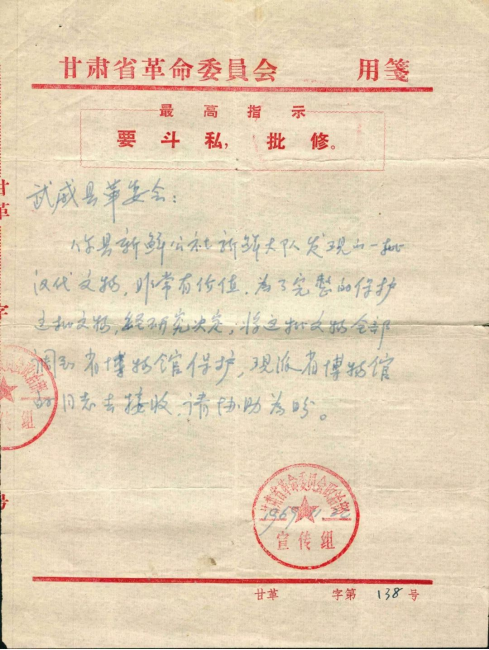 甘肃省革命委員会 用箋
最高指示
要斗私,批修。
武威县革委会:
你县新鲜公社新鲜大队发现的一批
汉代文物,非常有价值,为了完整的保护
这批文物,经研究决定,将这批文物全部
调到省博物馆保护,现派省博物馆
的同志去接收,请协助为盼。
甘肃省革命委员会政治部
宣传组
1969.11.
甘革 字第 138 号
甘革 字 号
组